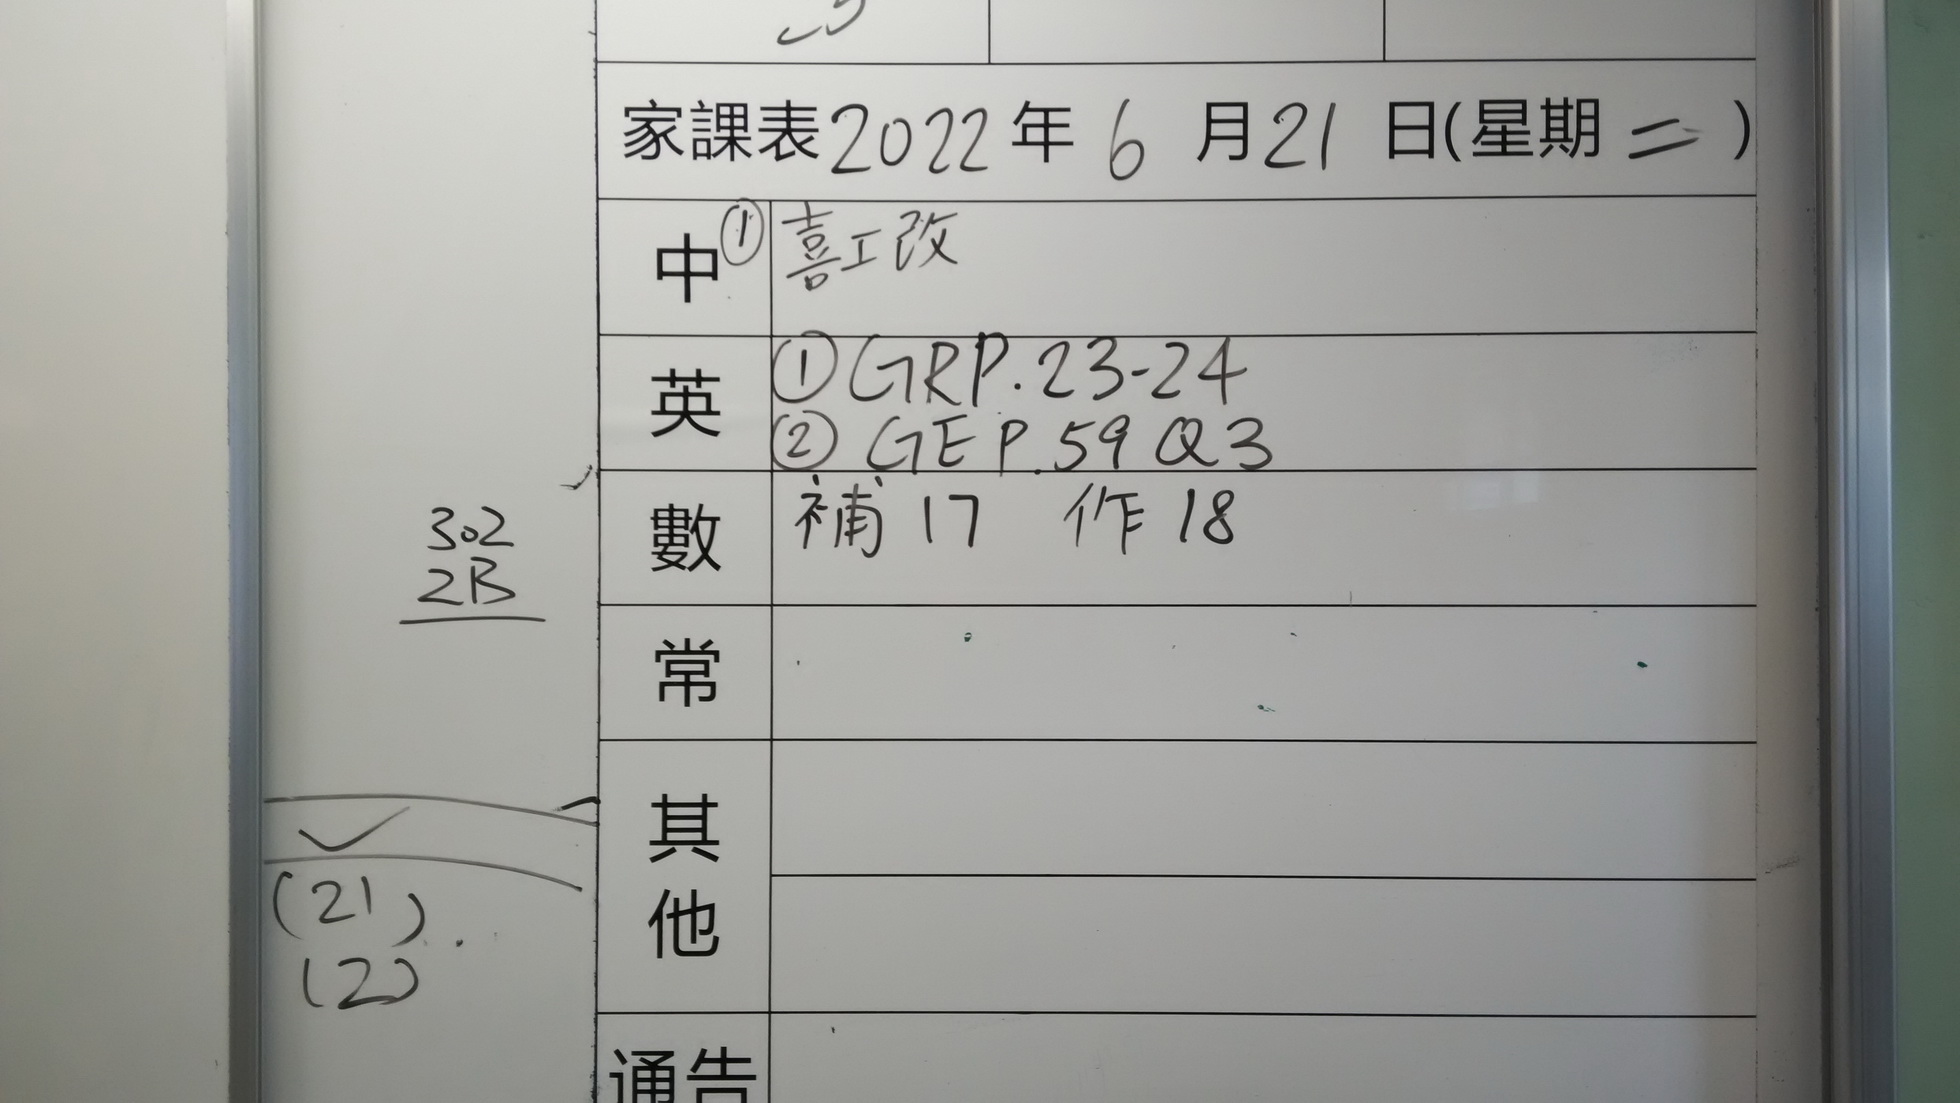 家課表2022年6月21日(星期二)
中 ① 喜工改
英 ① GRP.23-24
② GEP.59 Q3
數 補17 作18
302
2B
常
其他
(21)
(2)
通告